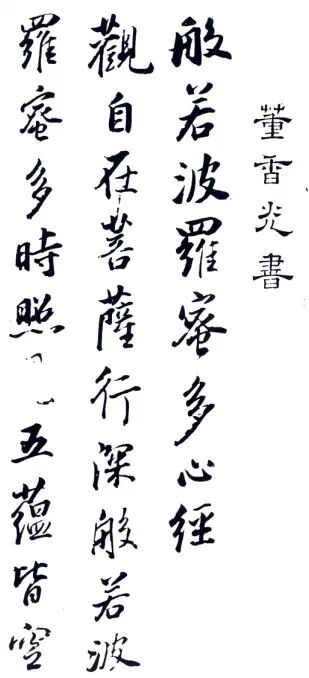 董香光書
般若波羅蜜多心經
觀自在菩薩行深般若波
羅蜜多時照五蘊皆空